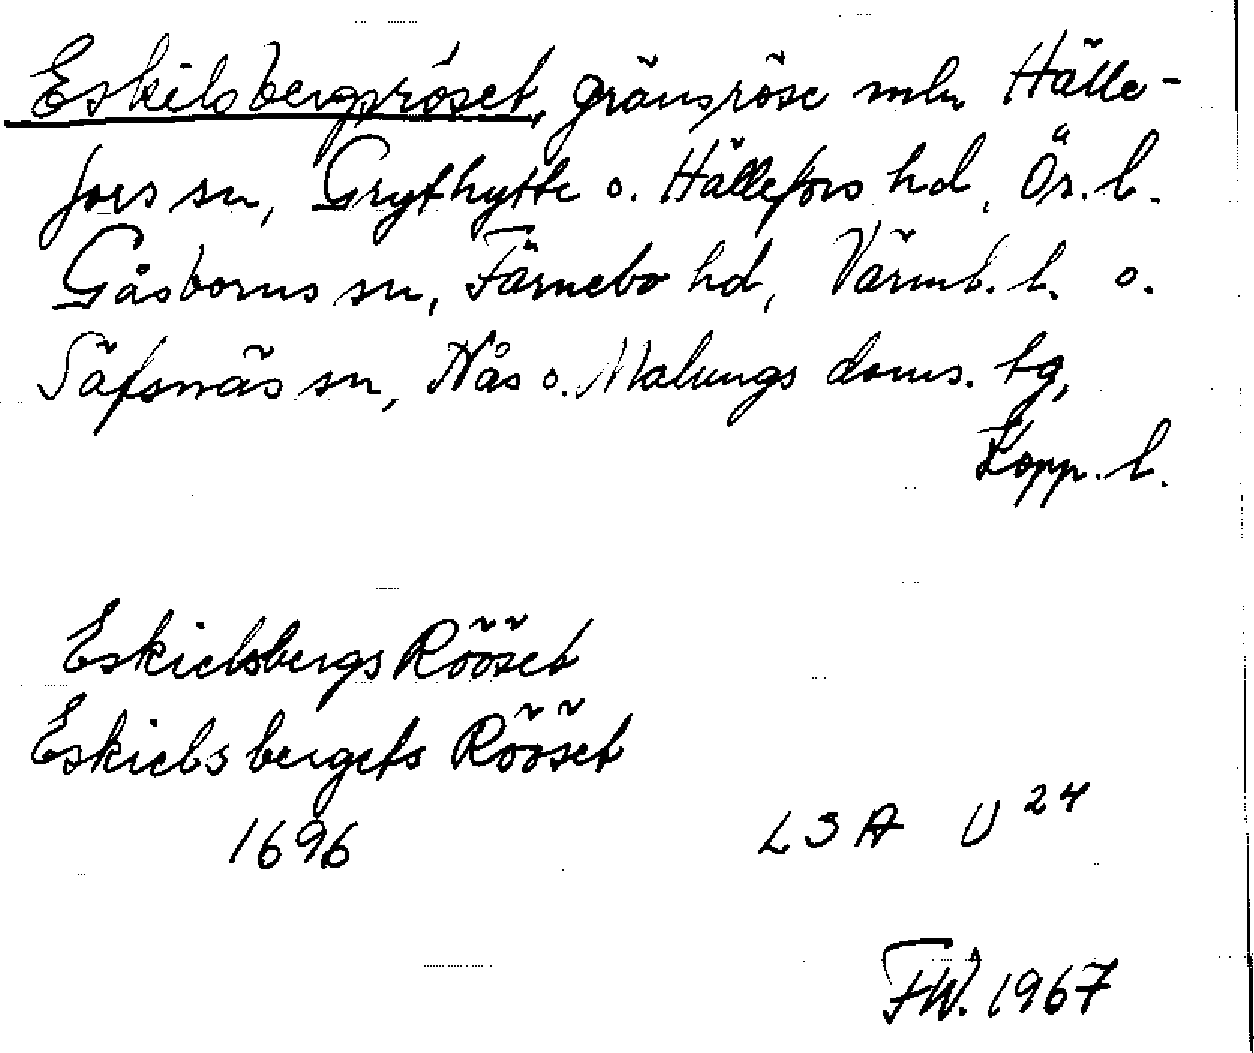 Eskilsbergsröset, gränsröse mln Hälle-
fors sn, Grythytte o. Hällefors hd, Ör. l.
Gåsborns sn, Färnebo hd, Värml. l. o.
Säfsnäs sn, Nås o. Malungs doms. tg,
Kopp. l.
Eskielsbergs Rööset
Eskielsbergets Rööset
1696
LSA U 24
FW. 1967